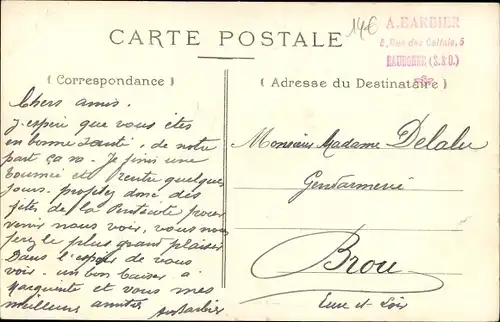 14€
A. BARBIER
CARTE POSTALE
( Correspondance )
( Adresse du Destinataire )
Chers amis.
J'espère que vous êtes
en bonne santé, de notre
part ça va. Je finis une
tournée et rentre quelque
jours. profitez donc des
fêtes de la Pentecôte pour
venir nous voir, vous nous
ferez le plus grand plaisir
Dans l'espoir de vous
voir. un bon baiser à
Marguerite et vous mes
meilleurs amitiés
Barbier
Monsieur Madame Delalu
Gendarmerie
Brou
Eure et Loir